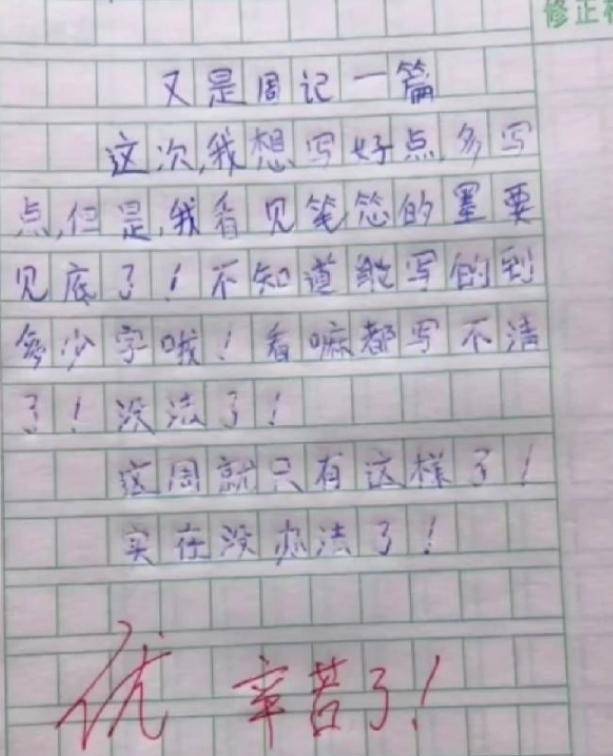 修正
又是周记一篇
这次,我想写好点,多写
点,但是,我看见笔芯的墨要
见底了!不知道能写的到
多少字哦!看嘛都写不清
了!没法了!
这周就只有这样了!
实在没办法了!
优 辛苦了!